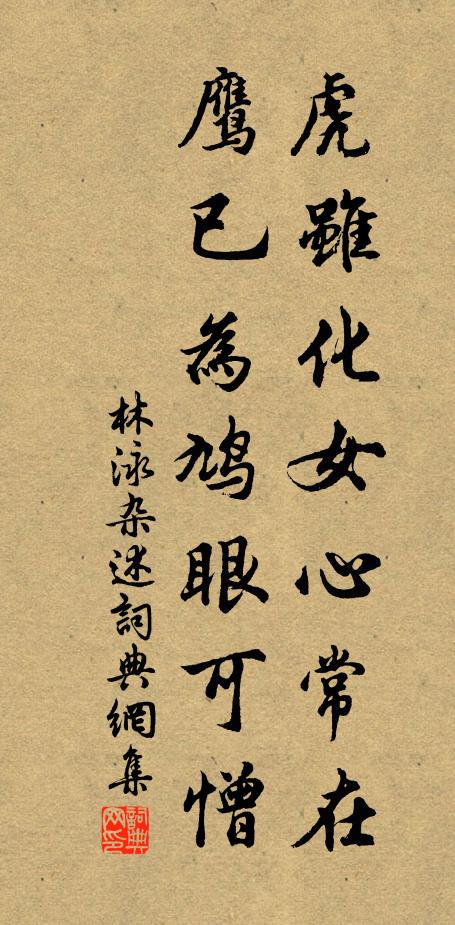 虎雖化女心常在
鷹已為鳩眼可憎
林泳杂述詞典網集
詞典网印